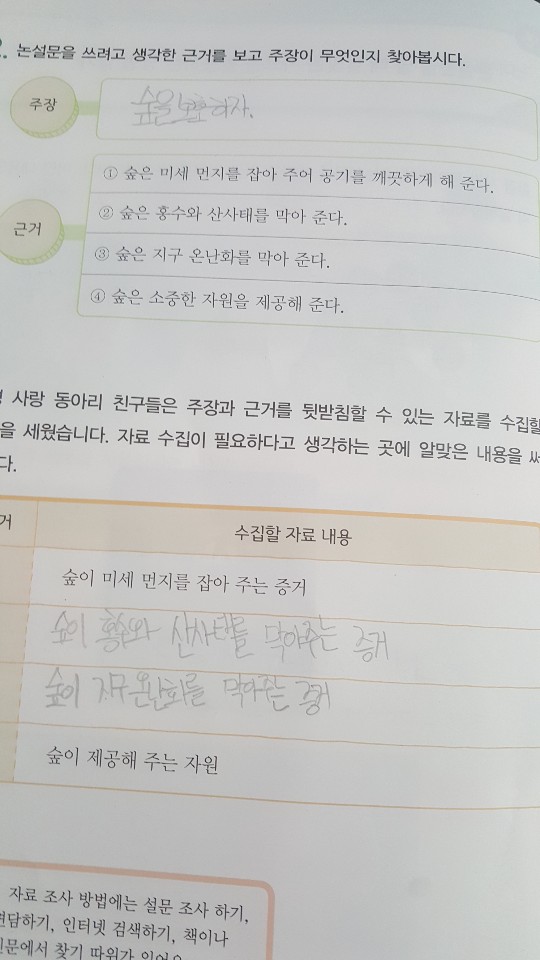 논설문을 쓰려고 생각한 근거를 보고 주장이 무엇인지 찾아봅시다.
주장
숲을 보호하자.
근거
① 숲은 미세 먼지를 잡아 주어 공기를 깨끗하게 해 준다.
② 숲은 홍수와 산사태를 막아 준다.
③ 숲은 지구 온난화를 막아 준다.
④ 숲은 소중한 자원을 제공해 준다.
사랑 동아리 친구들은 주장과 근거를 뒷받침할 수 있는 자료를 수집할
을 세웠습니다. 자료 수집이 필요하다고 생각하는 곳에 알맞은 내용을 써
다.
거
수집할 자료 내용
숲이 미세 먼지를 잡아 주는 증거
숲이 홍수와 산사태를 막아주는 증거
숲이 지구온난화를 막아주는 증거
숲이 제공해 주는 자원
자료 조사 방법에는 설문 조사 하기,
면담하기, 인터넷 검색하기, 책이나
신문에서 찾기 따위가 있어요